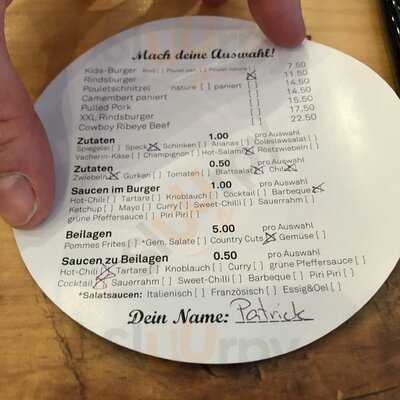 Mach deine Auswahl!
Kids-Burger Rind [ ] Poulet pan. [ ] Poulet nature [ ] 7.50
Rindsburger [X] 11.50
Pouletschnitzel nature [ ] paniert [ ] 14.50
Camembert paniert [ ] 14.50
Pulled Pork [ ] 15.50
XXL Rindsburger [ ] 17.50
Cowboy Ribeye Beef [ ] 22.50
Zutaten 1.00 pro Auswahl
Spiegelei [ ] Speck [X] Schinken [ ] Ananas [ ] Coleslawsalat [ ]
Vacherin-Käse [ ] Champignon [ ] Hot-Salami [X] Röstzwiebeln [ ]
Zutaten 0.50 pro Auswahl
Zwiebeln [X] Gurken [ ] Tomaten [ ] Blattsalat [X] Chili [X]
Saucen im Burger 1.00 pro Auswahl
Hot-Chili [ ] Tartare [ ] Knoblauch [ ] Cocktail [ ] Barbeque [X]
Ketchup [ ] Mayo [ ] Curry [ ] Sweet-Chilli [ ] Sauerrahm [ ]
grüne Pfeffersauce [ ] Piri Piri [ ]
Beilagen 5.00 pro Auswahl
Pommes Frites [ ] *Gem. Salate [ ] Country Cuts [X] Gemüse [ ]
Saucen zu Beilagen 0.50 pro Auswahl
Hot-Chili [X] Tartare [ ] Knoblauch [ ] Curry [ ] grüne Pfeffersauce [ ]
Cocktail [X] Sauerrahm [ ] Sweet-Chilli [ ] Barbeque [ ] Piri Piri [ ]
*Salatsaucen: Italienisch [ ] Französisch [ ] Essig&Oel [ ]
Dein Name: Patrick
sluurpy